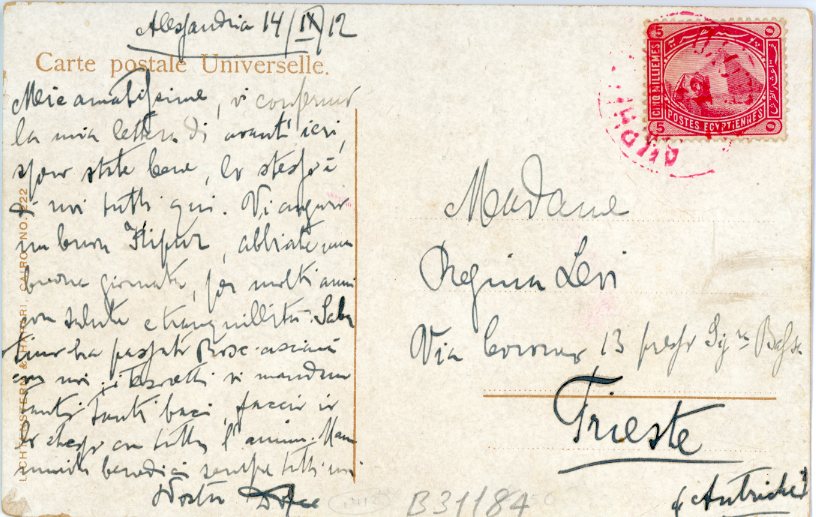 Alessandria 14/IX/12
Carte postale Universelle.
Mie amatissime, vi confermo
la mia lettera di avanti ieri,
spero state bene, lo stesso è
di noi tutti qui. Vi auguro
un buon Kipur, abbiate una
buona giornata, per molti anni
con salute e tranquillità.
ha passato Rose
con noi, i tesoretti vi mandano
tanti tanti baci, faccio io
lo stesso con tutta l'anima.
benedici sempre tutti noi
Vostra Dolce
LICHTENSTERN & HARARI, CAIRO. NO. 222
5 CINQ MILLIEMES
POSTES EGYPTIENNES
5
Madame
Regina Levi
Via 13 presso Sig.ra
Trieste
(Autriche)
B31184